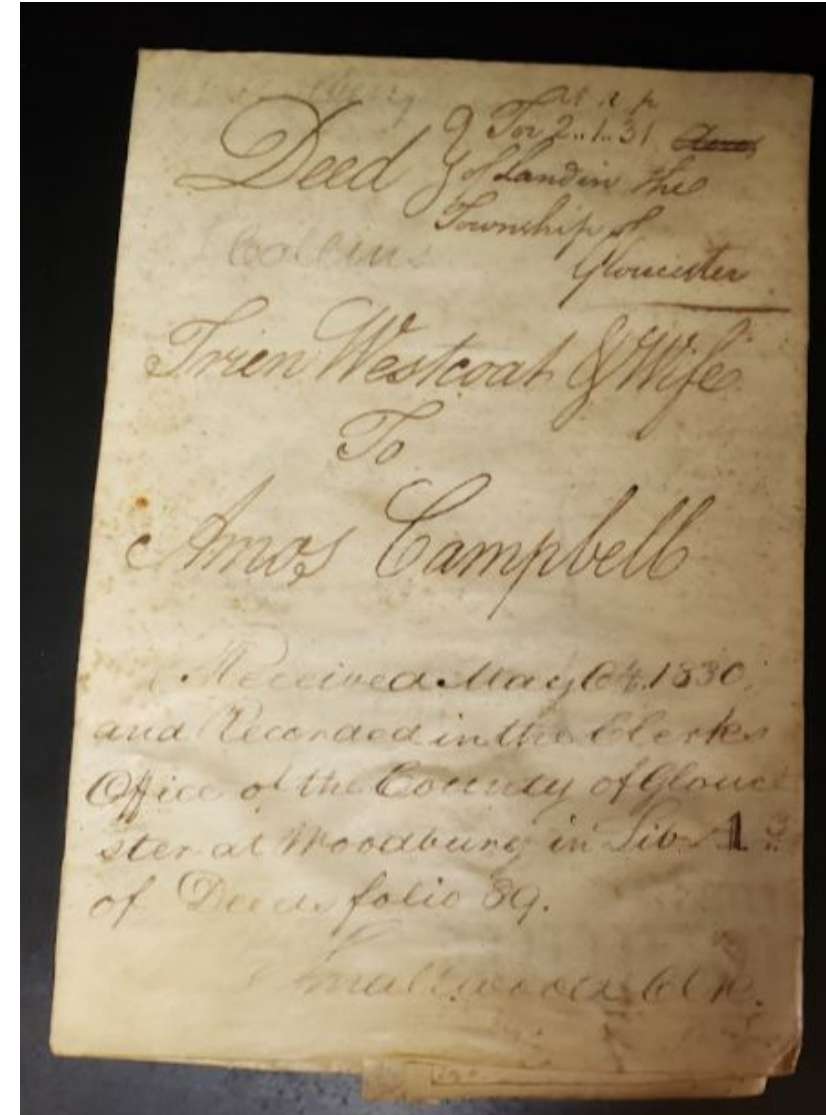 Deed
a r p
For 2..1..31
of Land in the
Township of
Gloucester
Collins
Irien Westcoat & Wife
To
Amos Campbell
Received May 6th. 1830,
and Recorded in the Clerks
Office of the County of Glouce
ster at Woodbury in Lib. A 3
of Deeds folio 89.
Smallwood Clk.